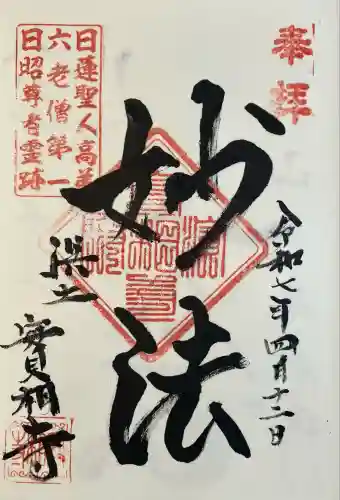 奉拝
令和七年四月十二日
妙法
日蓮聖人高弟
六老僧第一
日昭尊者霊跡
濱土
實相寺